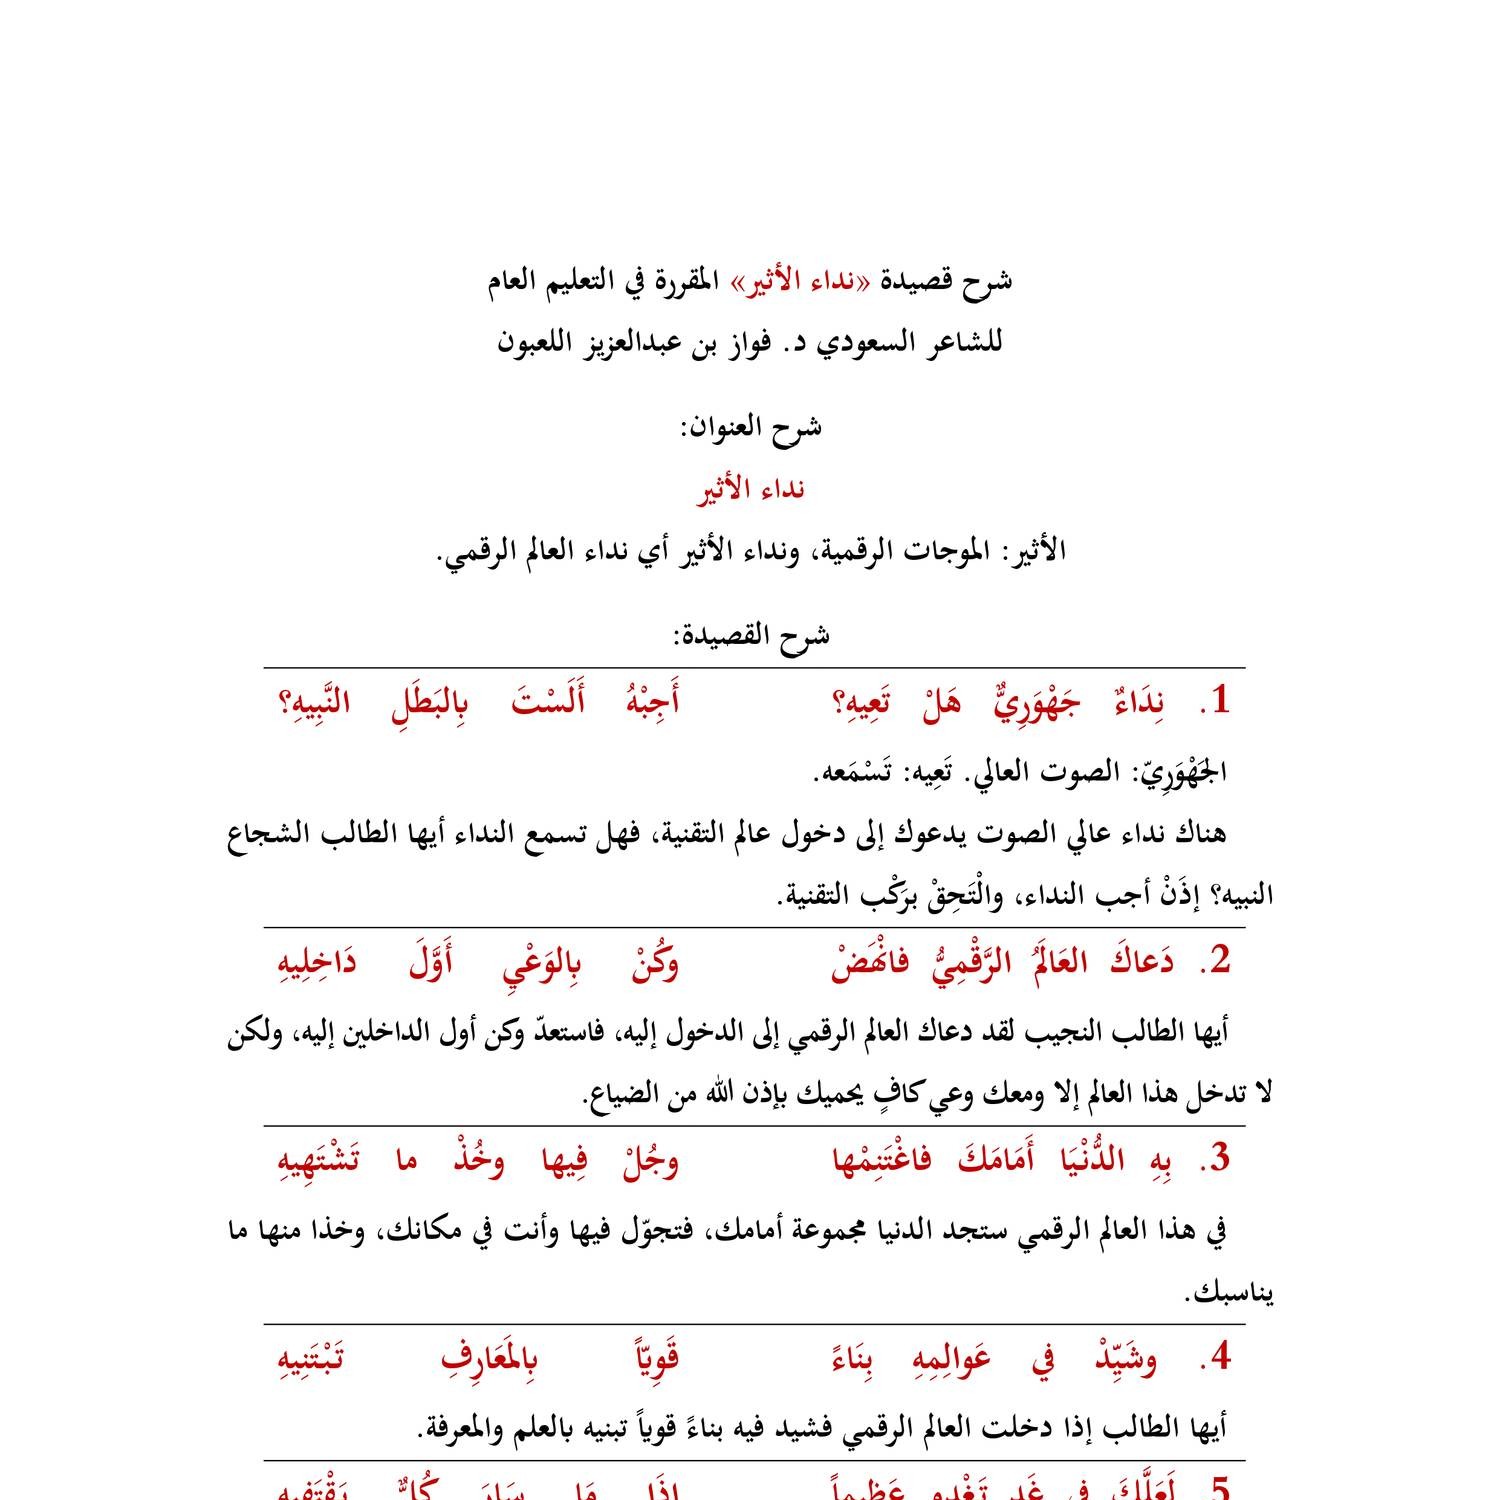 شرح قصيدة «نداء الأثير» المقررة في التعليم العام
للشاعر السعودي د. فواز بن عبدالعزيز اللعبون
شرح العنوان:
نداء الأثير
الأثير: الموجات الرقمية، ونداء الأثير أي نداء العالم الرقمي.
شرح القصيدة:
1. نِدَاءٌ جَهْوَرِيٌّ هَلْ تَعِيهِ؟ أَجِبْهُ أَلَسْتَ بِالبَطَلِ النَّبِيهِ؟
الجَهْوَرِيّ: الصوت العالي. تَعِيه: تَسْمَعه.
هناك نداء عالي الصوت يدعوك إلى دخول عالم التقنية، فهل تسمع النداء أيها الطالب الشجاع
النبيه؟ إذَنْ أجب النداء، والْتَحِقْ برَكْب التقنية.
2. دَعاكَ العَالَمُ الرَّقْمِيُّ فانْهَضْ وكُنْ بِالوَعْيِ أَوَّلَ دَاخِلِيهِ
أيها الطالب النجيب لقد دعاك العالم الرقمي إلى الدخول إليه، فاستعدّ وكن أول الداخلين إليه، ولكن
لا تدخل هذا العالم إلا ومعك وعي كافٍ يحميك بإذن الله من الضياع.
3. بِهِ الدُّنْيَا أَمَامَكَ فاغْتَنِمْها وجُلْ فِيها وخُذْ ما تَشْتَهِيهِ
في هذا العالم الرقمي ستجد الدنيا مجموعة أمامك، فتجوّل فيها وأنت في مكانك، وخذا منها ما
يناسبك.
4. وشَيِّدْ في عَوالِمِهِ بِنَاءً قَوِيّاً بِالمَعَارِفِ تَبْتَنِيهِ
أيها الطالب إذا دخلت العالم الرقمي فشيد فيه بناءً قوياً تبنيه بالعلم والمعرفة.
5. لَعَلَّكَ في غَدٍ تَغْدو عَظِيماً إِذَا مَا سَارَ كُلٌّ يَقْتَفِيهِ